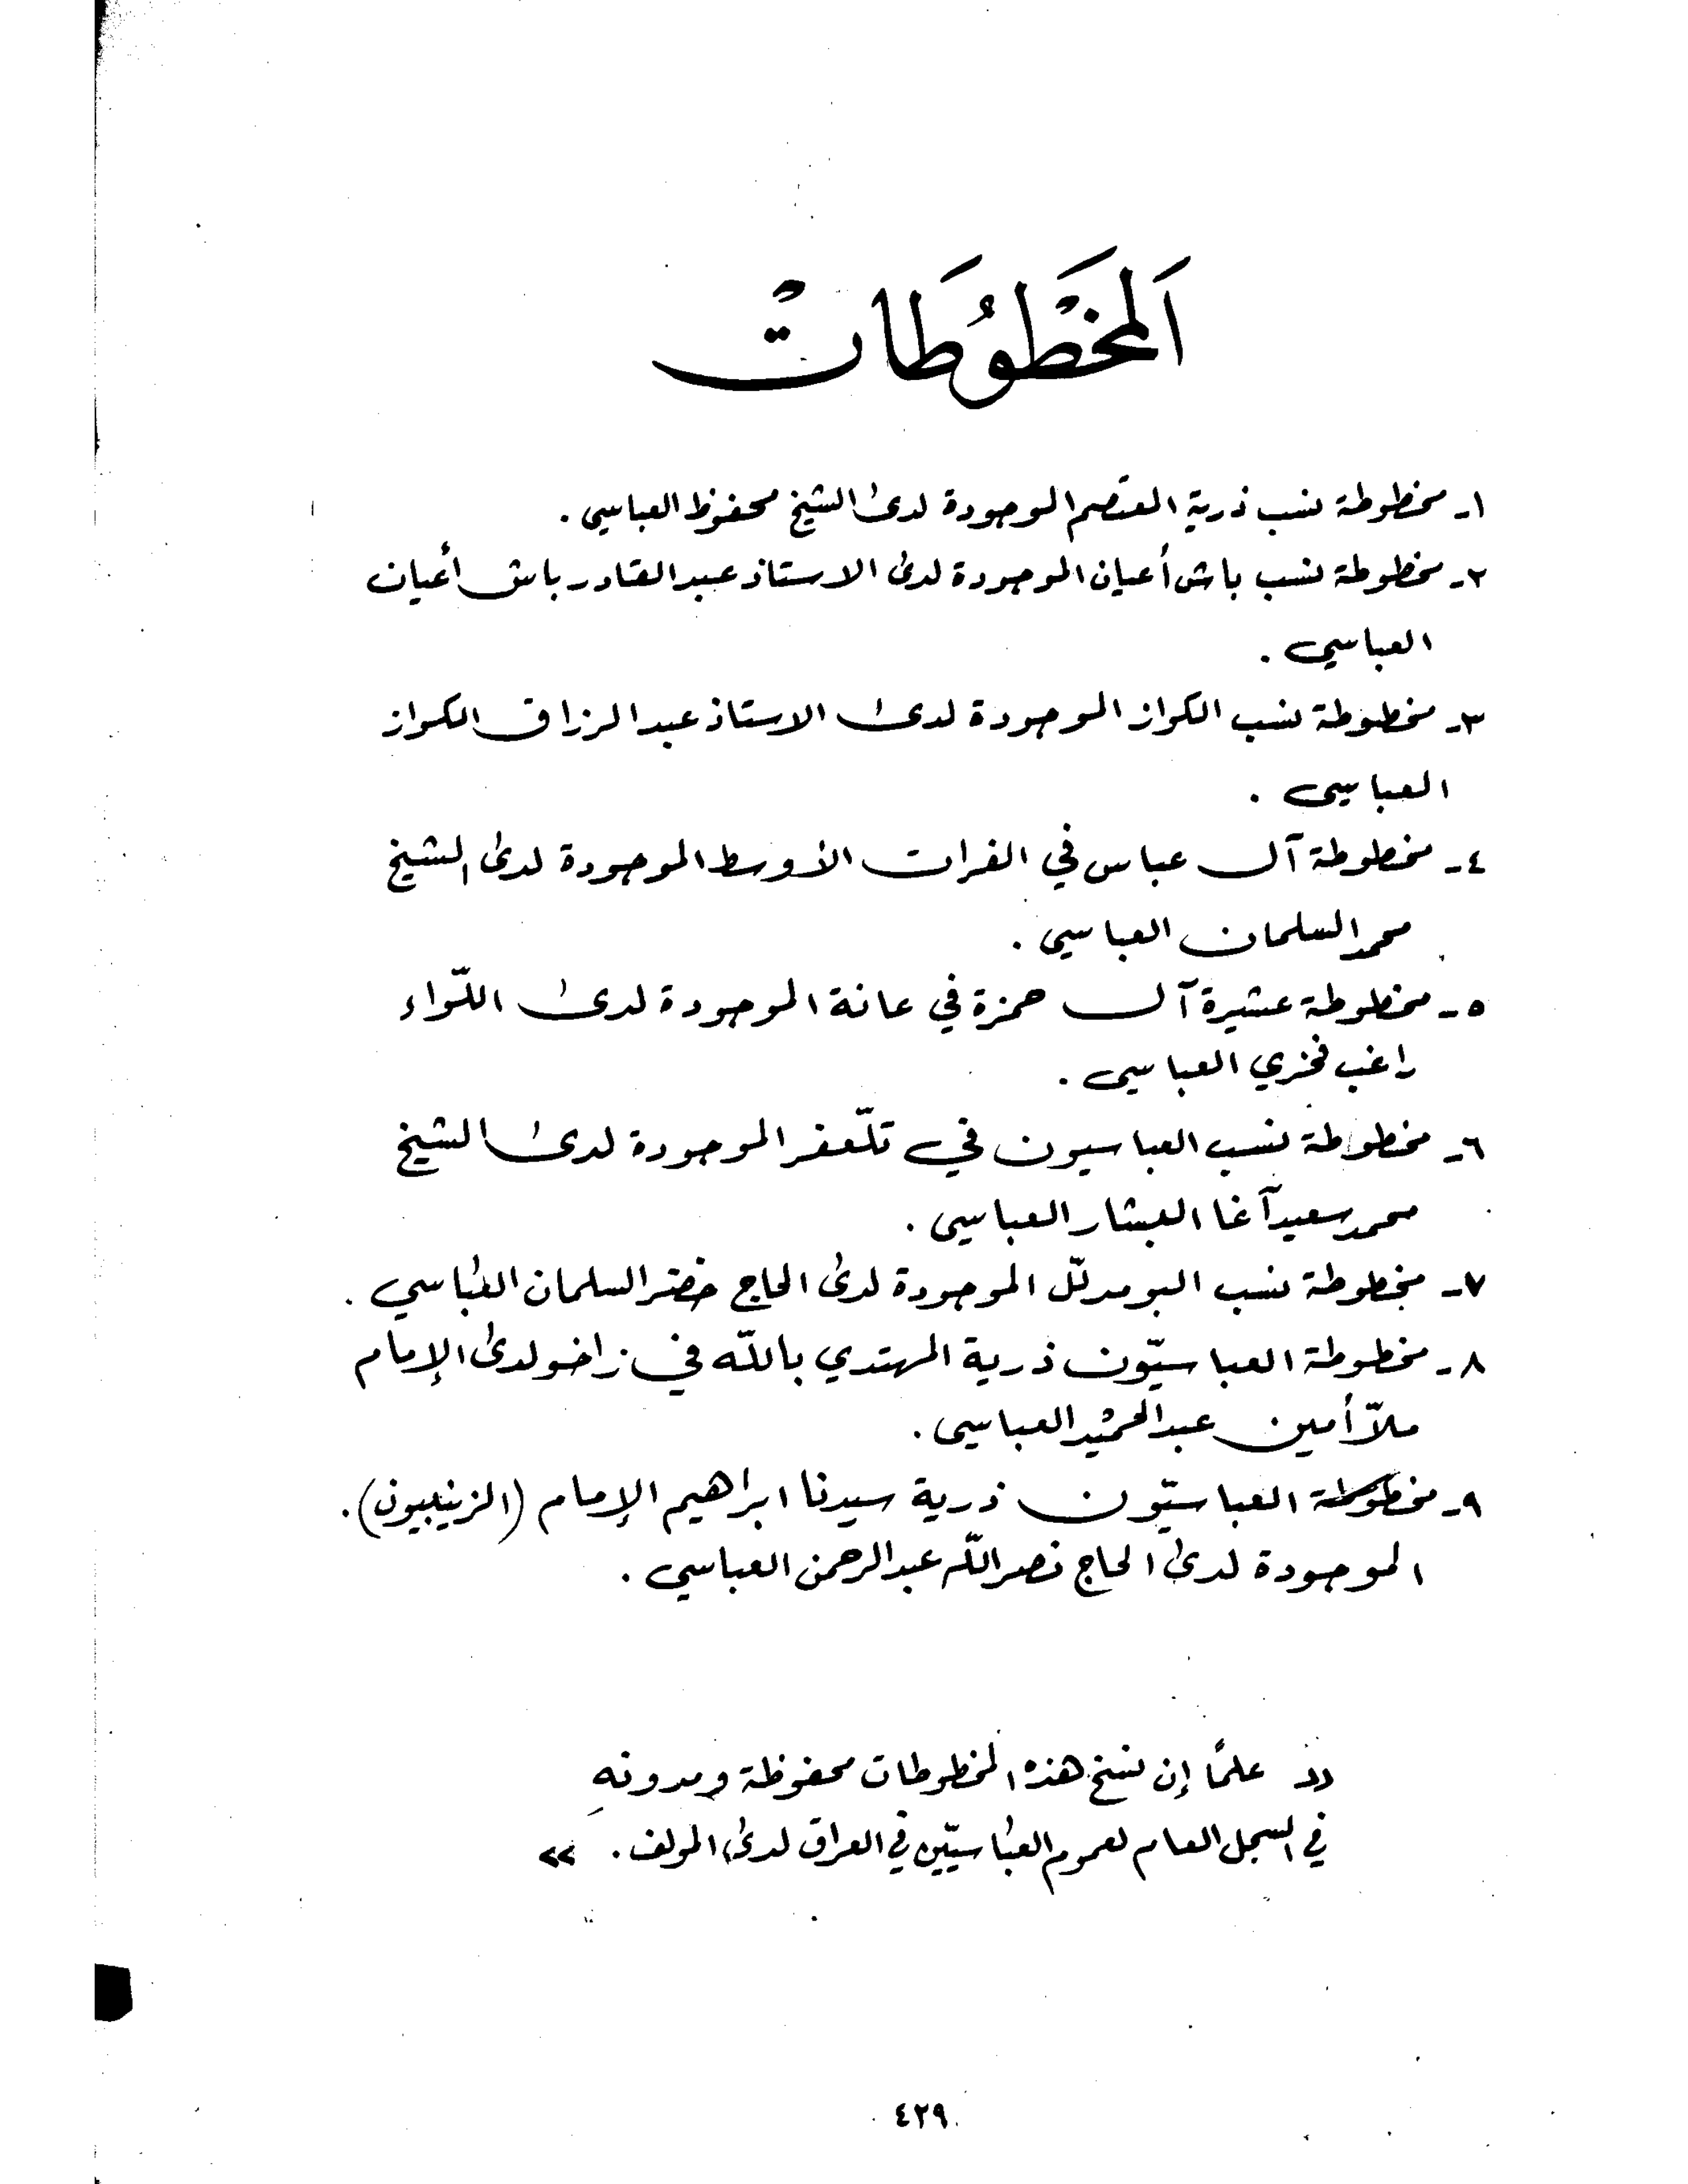 اَلمَخْطوُطَاتْ
١ـ مخطوطة نسب ذرية المعتصم الموجودة لدى الشيخ محفوظ العباسي .
٢ـ مخطوطة نسب باش أعيان الموجودة لدى الاستاذ عبد القادر باش أعيان
العباسي .
٣ـ مخطوطة نسب الكواز الموجودة لدى الاستاذ عبد الرزاق الكواز
العباسي .
٤ـ مخطوطة آل عباس في الفرات الأوسط الموجودة لدى الشيخ
محمد السلمان العباسي .
٥ـ مخطوطة عشيرة آل حمزة في عانة الموجودة لدى اللّواء
راغب فخري العباسي .
٦ـ مخطوطة نسب العباسيون في تلّعفر الموجودة لدى الشيخ
محمد سعيد آغا العشار العباسي .
٧ـ مخطوطة نسب البو مدلّل الموجودة لدى الحاج خضر السلمان العباسي .
٨ـ مخطوطة العباسيّون ذرية المهتدي باللّه في زاخو لدى الإمام
ملاّ أمين عبد الحميد العباسي .
٩ـ مخطوطة العباسيّون ذرية سيدنا ابراهيم الإمام (الزينبيون) .
الموجودة لدى الحاج نصر اللّه عبد الرحمن العباسي .
« علمًا إن نسخ هذه المخطوطات محفوظة ومدونه
في السجل العام لعموم العباسيّين في العراق لدى المولف . »
٤٢٩